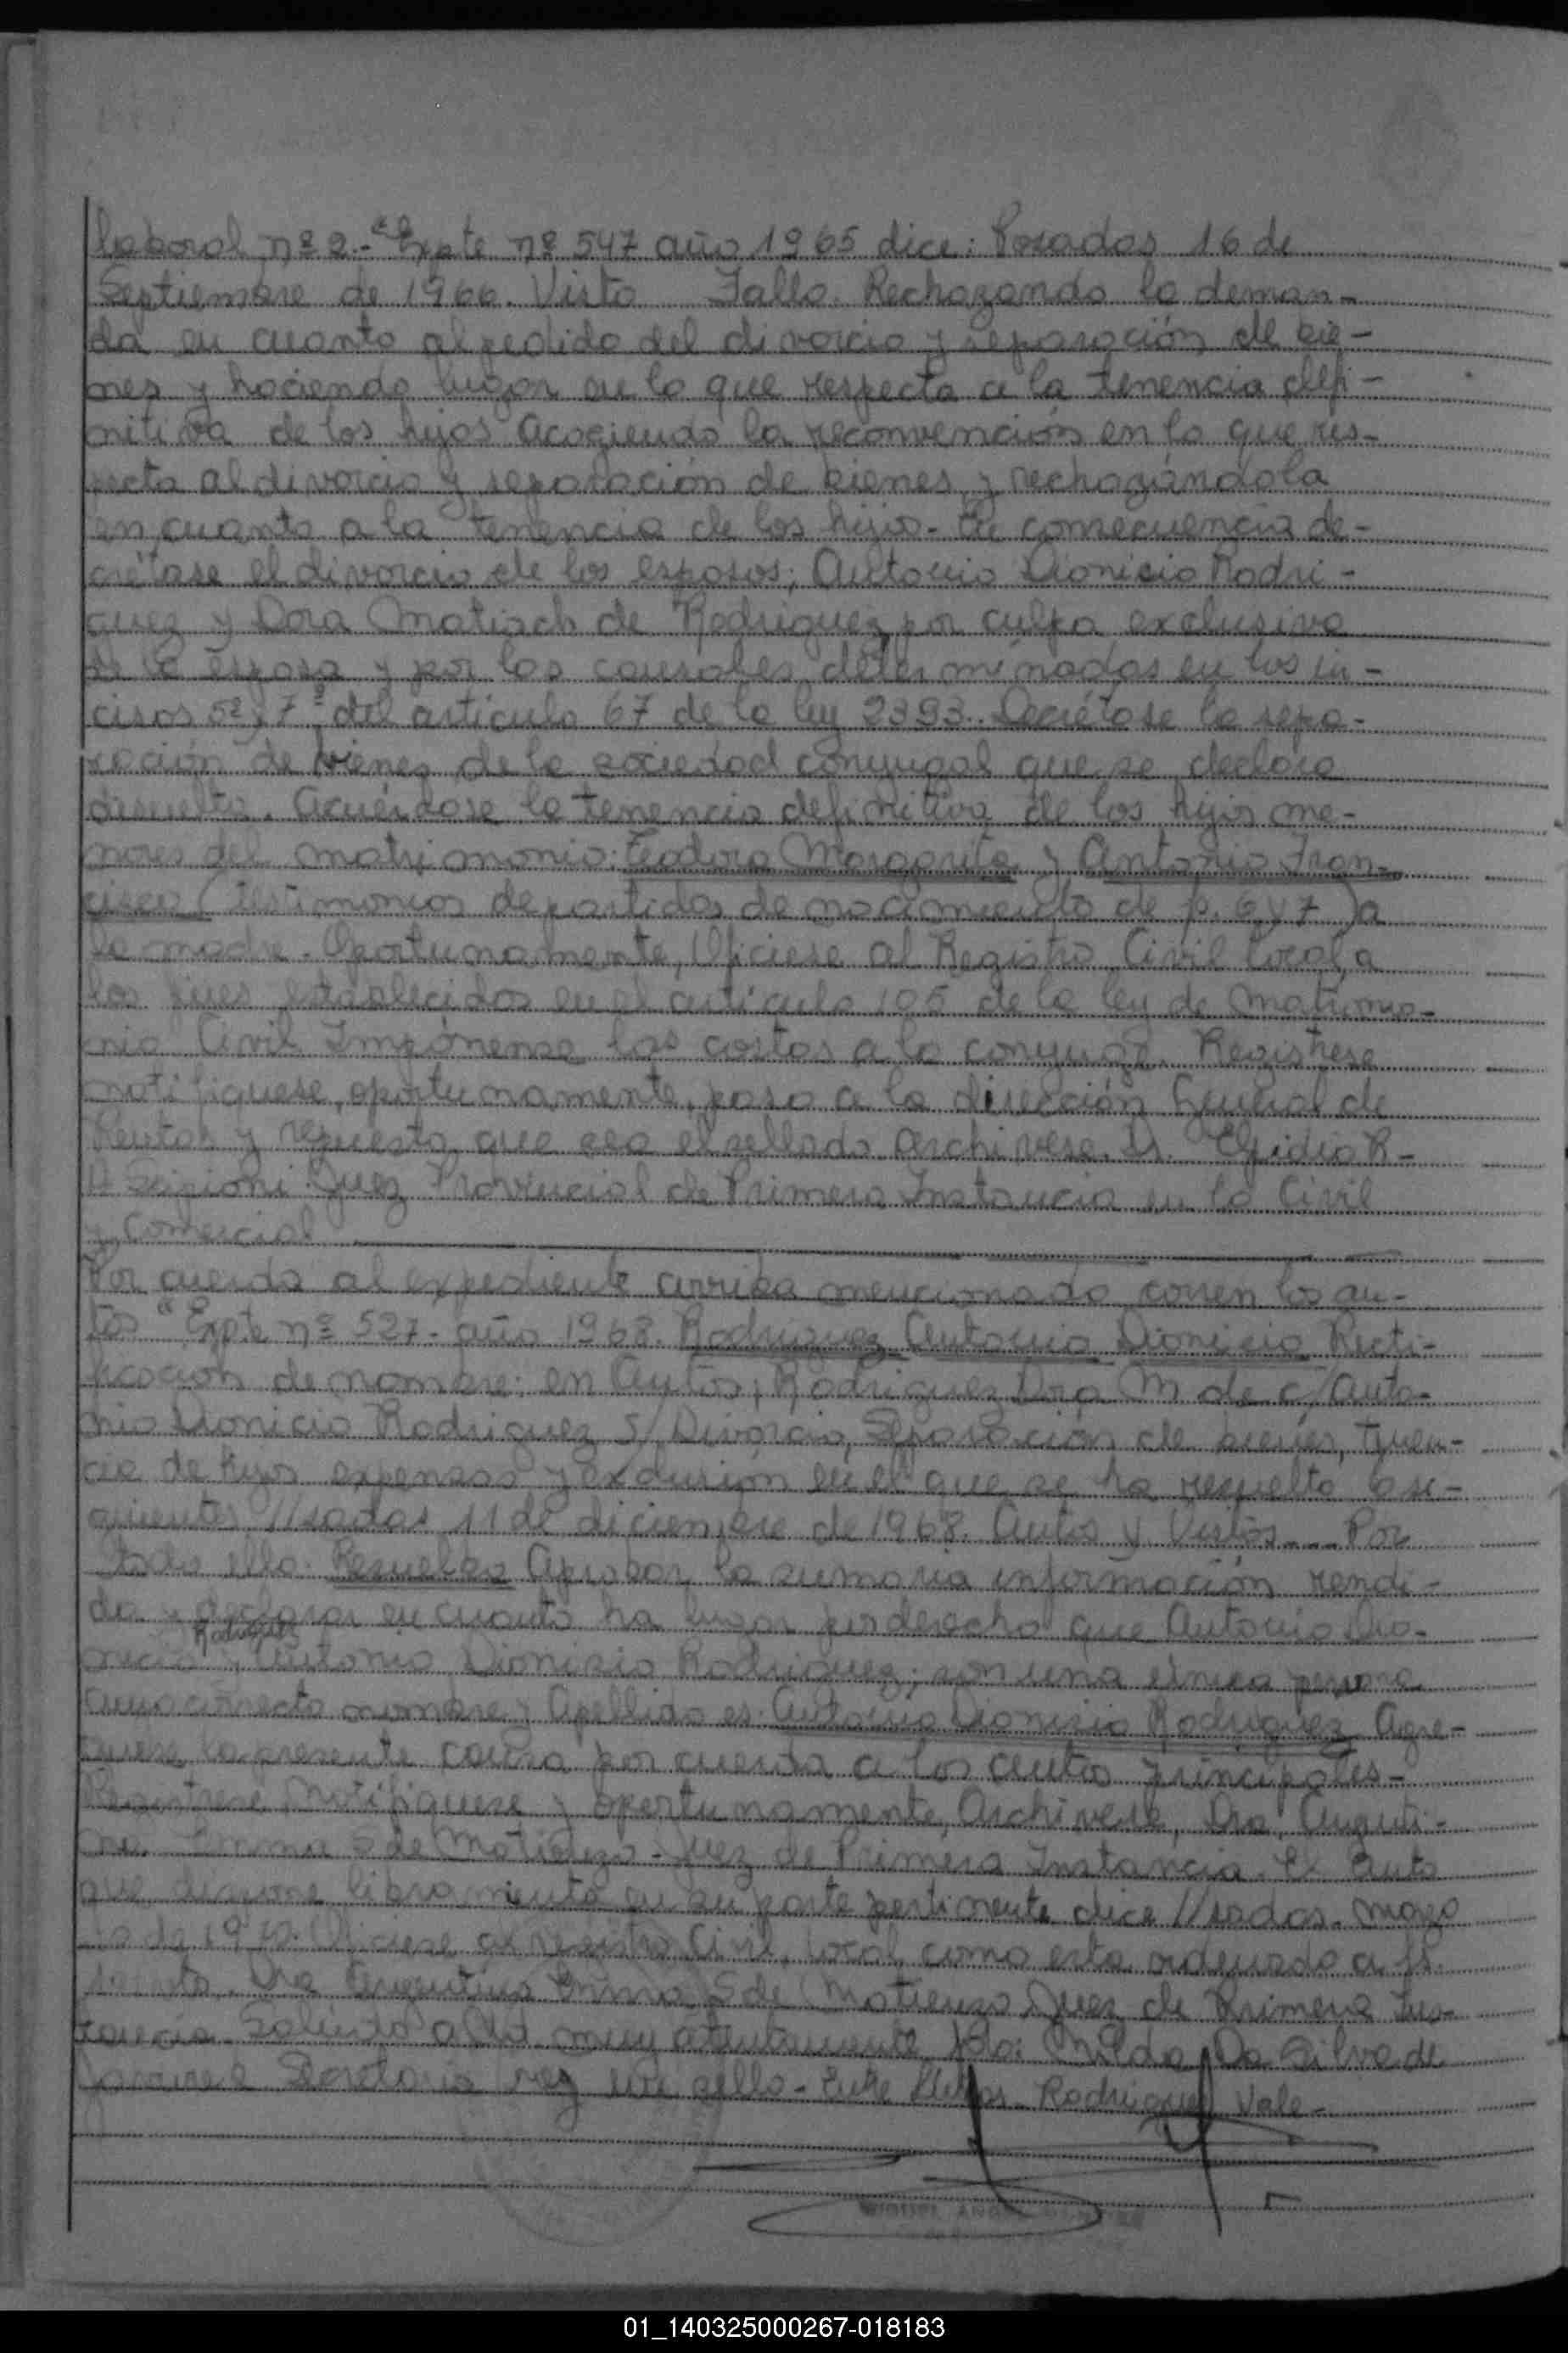 laboral nº 2.- "Expte nº 547 año 1965 dice: Posadas 16 de
Septiembre de 1966. Visto Fallo. Rechazando la deman-
da en cuanto al pedido del divorcio y separación de bie-
nes y haciendo lugar en lo que respecta a la tenencia defi-
nitiva de los hijos acogiendo la reconvención en lo que res-
pecta al divorcio y separación de bienes y rechazándola
en cuanto a la tenencia de los hijos. En consecuencia de-
crétase el divorcio de los esposos; Antonio Dionicio Rodri-
guez y Dora Matiach de Rodriguez por culpa exclusiva
de la esposa y por las causales determinadas en los in-
cisos 5º y 7º del artículo 67 de la ley 2393. Decrétase la sepa-
ración de bienes de la sociedad conyugal que se declara
disuelta. Acuérdase la tenencia definitiva de los hijos me-
nores del matrimonio: Teodora Margarita y Antonio Fran-
cisco (testimonios de partidas de nacimiento de p. 6 y 7) a
la madre. Oportunamente, Ofíciese al Registro Civil local, a
los fines establecidos en el artículo 105 de la ley de Matrimo-
nio Civil. Impónense las costas a la conyuge. Registrese
notifiquese, oportunamente, paso a la dirección General de
Rentas y repuesto que sea el sellado archivese. Dr. Egidio R-
Juez Provincial de Primera Instancia en lo Civil
y Comercial
Por cuerda al expediente arriba mencionado corren los au-
tos "Expte nº 527- año 1968. Rodriguez Antonio Dionicio Recti-
ficación de nombre: en Autos, Rodriguez Dora M. de c/ Anto-
nio Dionicio Rodriguez S/ Divorcio, Separación de bienes, tenen-
cia de hijos expensas y exclusión en el que se ha resuelto lo si-
guiente, //sadas 11 de diciembre de 1968. Autos y Vistos.... Por
todo ello: Resuelvo Aprobar la sumaria información rendi-
da y declarar en cuanto ha lugar por derecho que Antonio Dio-
nicio Rodriguez y Antonio Dionisio Rodriguez; son una única persona
cuyo correcto nombre y Apellido es: Antonio Dionisio Rodriguez. Agre-
guese la presente causa por cuerda a los autos principales-
Registrese, Notifiquese y oportunamente, Archivese, Dra.
Emma S de Matienzo - Juez de Primera Instancia. El auto
que dispone libramiento en su parte pertinente dice //sadas. mayo
de 19 Ofíciese al registro Civil, local, como esta ordenado a fs.
Dra Emma S de Matienzo Juez de Primera Ins-
tancia. Saludo a Ud. muy atentamente Fdo: Nilda Da Silva de
Secretaria. Hay un sello- Entre lineas- Rodriguez Vale-
01_140325000267-018183